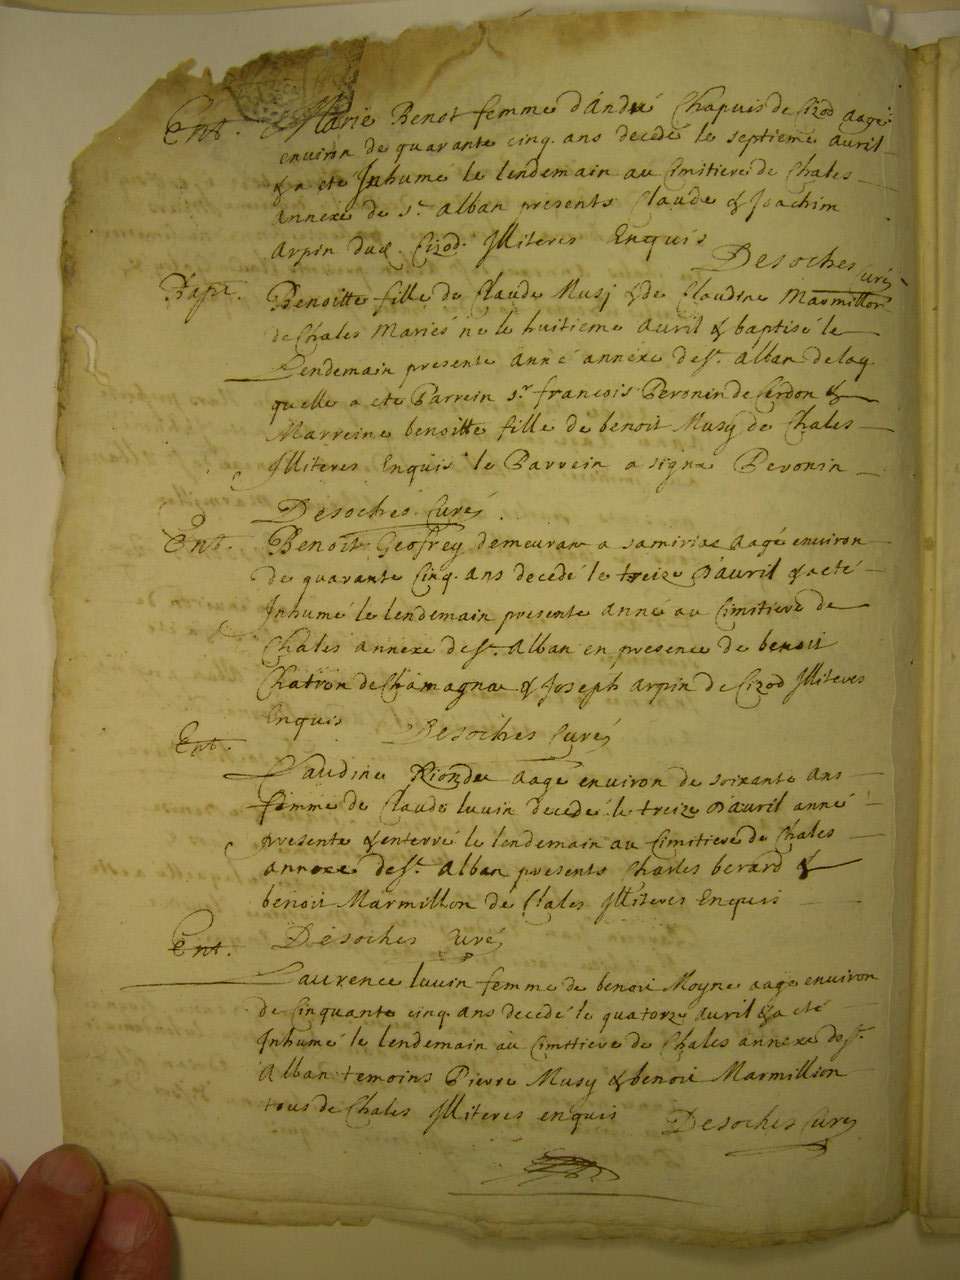 Ent. Marie Benot femme d'André Chapuis de Cizod aagé
environ de quarante cinq ans decede le septieme avril
& a eté Inhumé le lendemain au Cimitiere de Chales
annexe de st. Alban presents Claude & Joachim
Arpin dud. Cizod Illiteres Enquis
Desoches Curé
Bapt. Benoitte fille de Claude Musj & de Claudine Marmillon
de Chales Mariés né le huitieme avril & baptisé le
Lendemain presente anné annexe de st. Alban de laq
quelle a eté Parrein sr. francois Peronin de Cerdon &
Marreine benoitte fille de benoit Musy de Chales
Illiteres Enquis le Parrein a signé Peronin
Desoches Curé
Ent. Benoit Geofrey demeurant a aagé environ
de quarante Cinq ans decedé le treize D'avril & a eté
Inhumé le lendemain presente anné au Cimitiere de
Chales annexe de st. Alban en presence de benoit
Chatron de Chamagna & Joseph Arpin de Cizod Illiteres
Enquis Desoches Curé
Ent.
Claudine Rionde aagé environ de soixante ans
femme de Claude luvin decedé le treize D'avril anné
presente & enterré le lendemain au Cimitiere de Chales
annexe de st. Alban presents Charles berard &
benoit Marmillon de Chales Illiteres Enquis
Ent. Desoches Curé
Laurence luvin femme de benoit Moyne aagé environ
de Cinquante cinq ans decedé le quatorze avril & a eté
Inhumé le lendemain au Cimitiere de Chales annexe de st.
Alban temoins Pierre Musy & benoit Marmillion
tous de Chales Illiteres enquis Desoches Curé